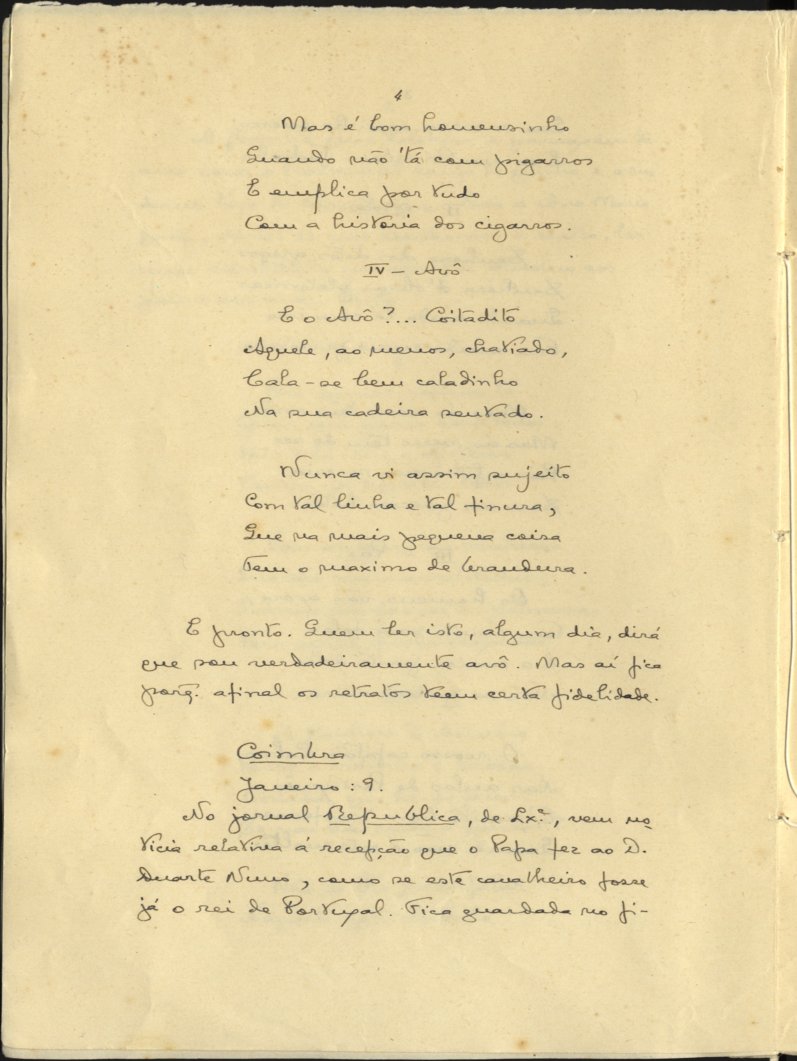 4
Mas é bom homensinho
Quando não 'tá com pigarros
E emplica por tudo
Com a historia dos cigarros.
IV – Avô
E o Avô?... Coitadito
Aquele, ao menos, chatiado,
Cala-se bem caladinho
Na sua cadeira sentado.
Nunca vi assim sujeito
Com tal linha e tal finura,
Que na mais pequena coisa
Tem o maximo de brandura.
E pronto. Quem ler isto, algum dia, dirá
que sou verdadeiramente avô. Mas aí fica
porq. afinal os retratos teem certa fidelidade.
Coimbra
Janeiro: 9.
No jornal Republica, de Lxª, vem no
ticia relativa á recepção que o Papa fez ao D.
Duarte Nuno, como se este cavalheiro fosse
já o rei de Portugal. Fica guardada no fi-